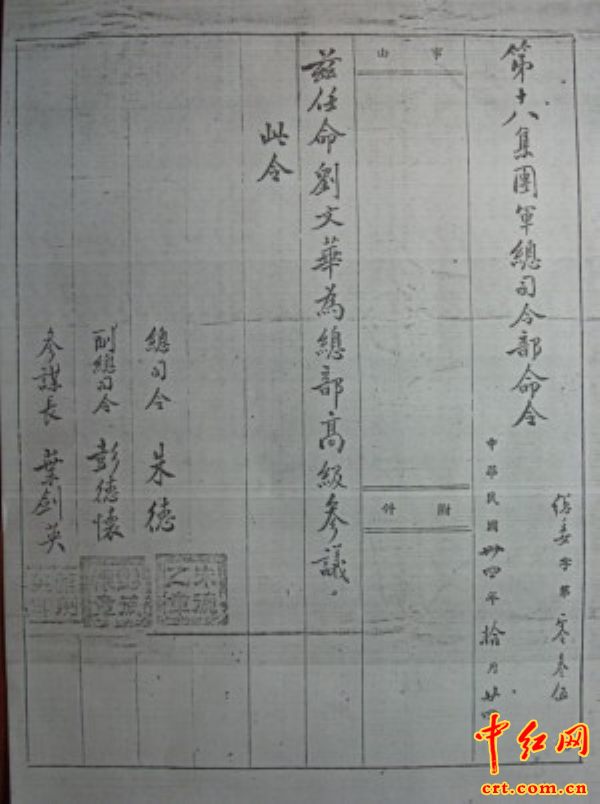 第十八集團軍總司令部命令
總委字第零叁伍
中華民國卅四年拾月廿四
事由
附件
茲任命劉文華為總部高級參議.
此令
總司令 朱德
副總司令 彭德懷
參謀長 葉劍英
朱德之章
中红网
crt.com.cn